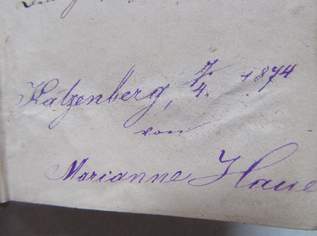 Katzenberg, 7/4. 1874
von
Marianne Haue